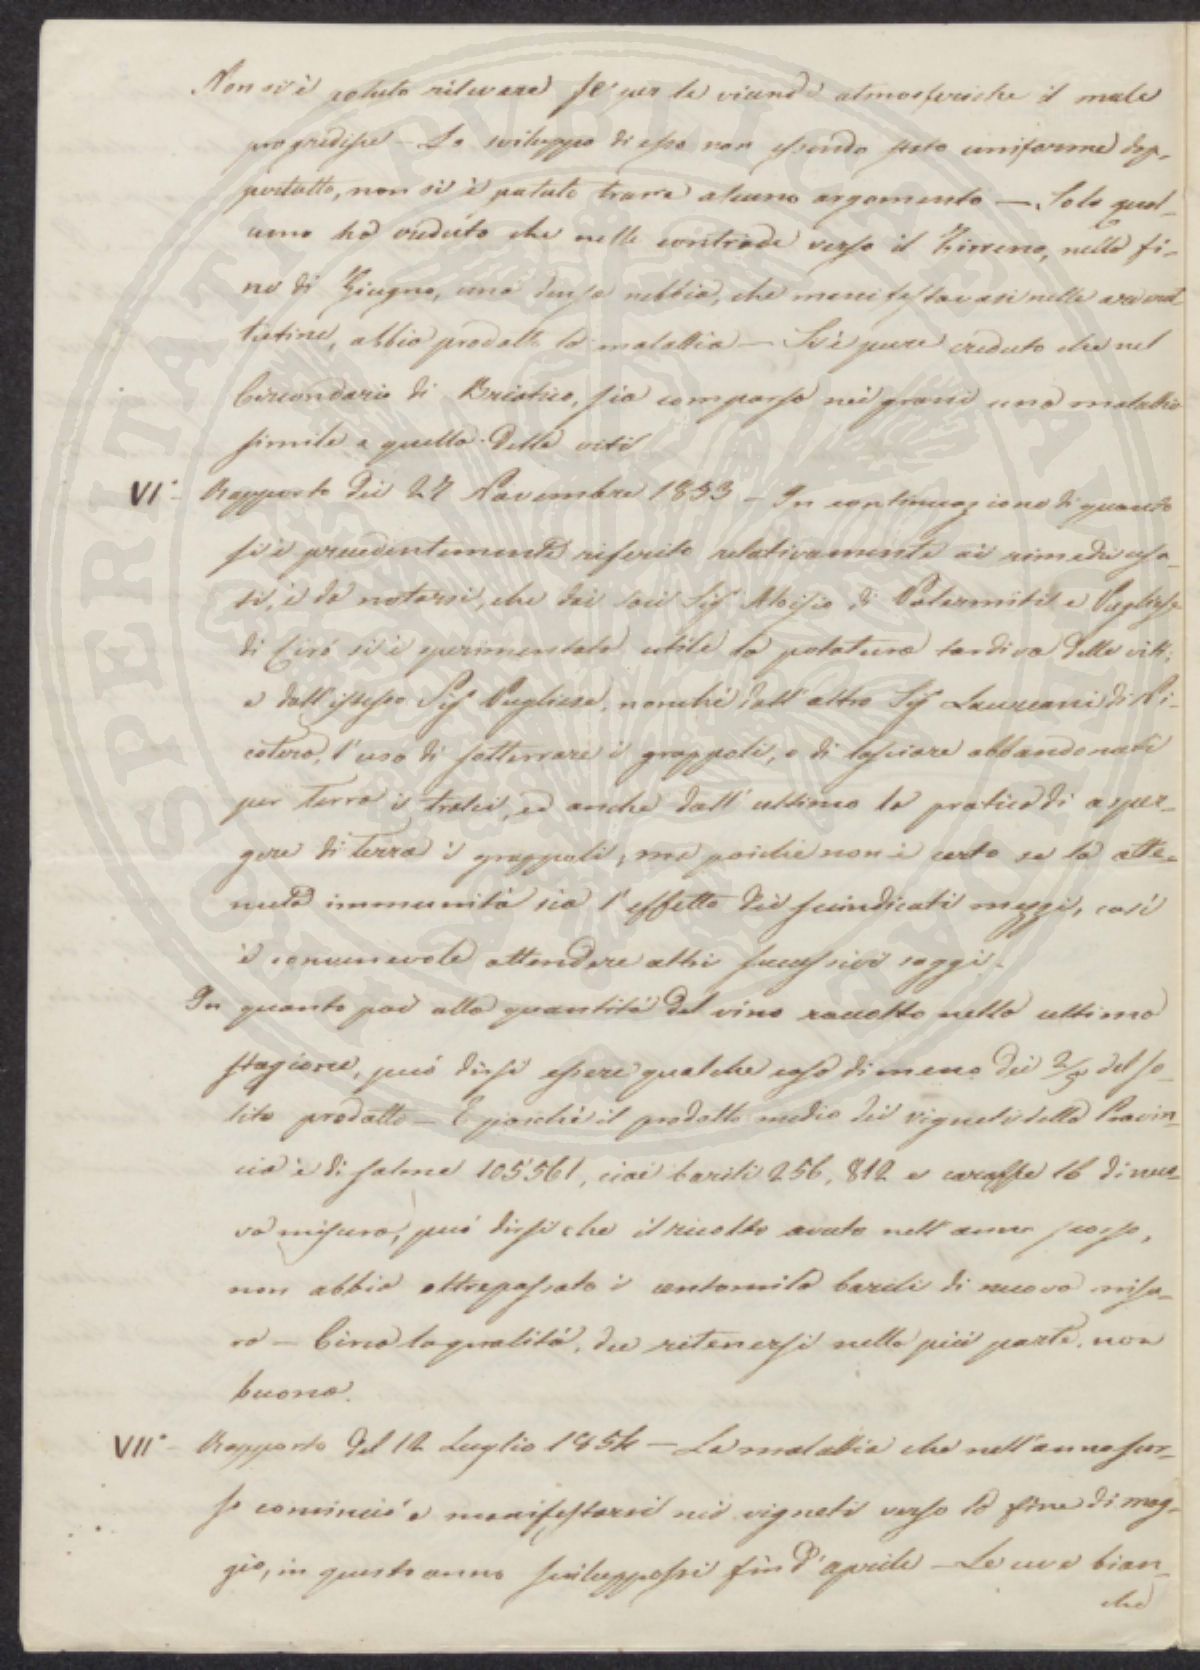 Non si è potuto rilevare se per le vicende atmosferiche il male
progredisse – Lo sviluppo di esso non essendo stato uniforme dap-
pertutto, non si è potuto trarre alcuno argomento – Solo qual-
cuno ha veduto che nelle contrade verso il Tirreno, nella fi-
ne di Giugno, una densa nebbia, che manifestavasi nelle ore
, abbia prodotto la malattia – Si è pure creduto che nel
Circondario di Briatico, sia comparsa nei grani una malattia
simile a quella delle viti
VI°- Rapporto dei 27 Novembre 1853 – In continuazione di quanto
si è precedentemente riferito relativamente ai rimedi usa-
ti, è da notarsi, che dai soci Sig.r Aloisio di Palermiti e Pugliese
di Cirò si è sperimentata utile la potatura tardiva delle viti;
e dall'istesso Sig.r Pugliese, nonché dall'altro Sig.r Laureani di Ni-
cotera, l'uso di sotterrare i grappoli, o di lasciare abbandonati
per terra i tralci, ed anche dall'ultimo la pratica di asper-
gere di terra i grappoli; ma poiché non è certo se la otte-
nuta immunità sia l'effetto dei suindicati mezzi, così
è convenevole attendere altri successivi saggi.
In quanto poi alla quantità del vino raccolto nella ultima
stagione, può dirsi essere qualche cosa di meno dei 2/5 del so-
lito prodotto – E poiché il prodotto medio dei vigneti della Provin-
cia è di salme 105561, cioè barili 256,812 e caraffe 16 di nuo-
va misura, può dirsi che il ricolto avuto nell'anno scorso,
non abbia oltrepassato i centomila barili di nuova misu-
ra – Circa la qualità, dee ritenersi nella più parte, non
buona.
VII°- Rapporto del 12 Luglio 1854 – La malattia che nell'anno scor-
so cominciò a manifestarsi nei vigneti verso la fine di mag-
gio, in questo anno sviluppossi fin d'aprile – Le uve bian-
che